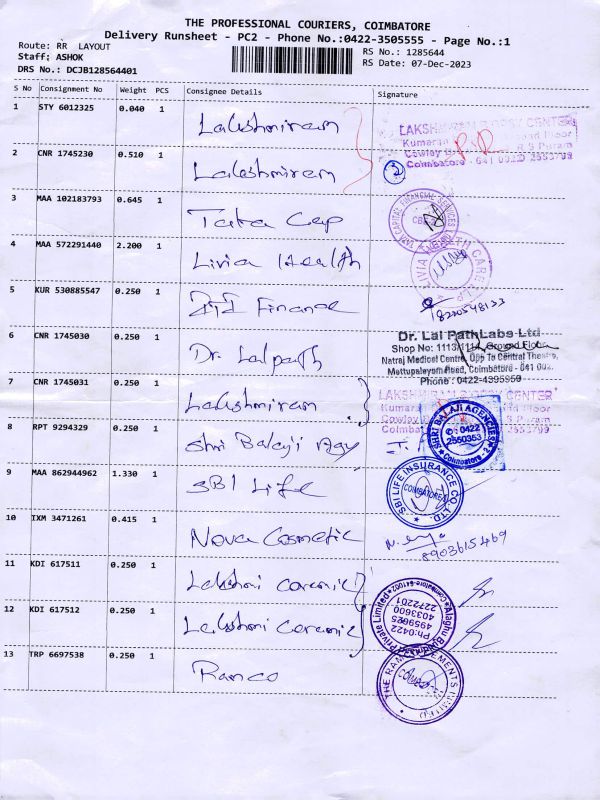 THE PROFESSIONAL COURIERS, COIMBATORE
Delivery Runsheet - PC2 - Phone No.:0422-3505555 - Page No.:1
Route: RR LAYOUT
Staff; ASHOK
DRS No.: DCJB128564401
RS No.: 1285644
RS Date: 07-Dec-2023
S No Consignment No Weight PCS Consignee Details Signature
1 STY 6012325 0.040 1 Lakshmiram
LAKSHMIRAM CENTER
Kumaran Floor
Cowley R S Puram
Coimbatore - 641 002 2553799
2 CNR 1745230 0.510 1 Lakshmiram 2
3 MAA 102183793 0.645 1 Tata Cap
TATA CAPITAL FINANCIAL SERVICES
4 MAA 572291440 2.200 1 Livia Health
LIVIA HEALTH CARE
5 KUR 530885547 0.250 1 Finance
8220548133
6 CNR 1745030 0.250 1 Dr. Lalpath
Dr. Lal PathLabs Ltd
Shop No: 1113/1114, Ground Floor
Natraj Medical Centre, Opp To Central Theatre,
Mettupalayam Road, Coimbatore - 641 002.
Phone: 0422-4395950
7 CNR 1745031 0.250 1 Lakshmiram
LAKSHMIRAM CENTER
Floor
R S Puram
2553799
8 RPT 9294329 0.250 1 Shri Balaji Agy
SHRI BALAJI AGENCIES
0422
2550353
Coimbatore - 2
9 MAA 862944962 1.330 1 SBI Life
SBI LIFE INSURANCE CO. LTD.
COIMBATORE
10 IXM 3471261 0.415 1 Nova Cosmetic
8903615469
11 KDI 617511 0.250 1 Lakshmi ceramic
12 KDI 617512 0.250 1 Lakshmi ceramic
Private Limited Coimbatore-641002
Ph:0422
4959625
4033600
2272201
13 TRP 6697538 0.250 1 Ramco
THE RAMCO CEMENTS LIMITED